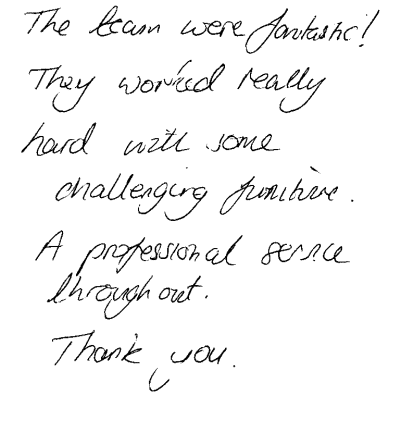 The team were fantastic!
They worked really
hard with some
challenging furniture.
A professional service
throughout.
Thank you.